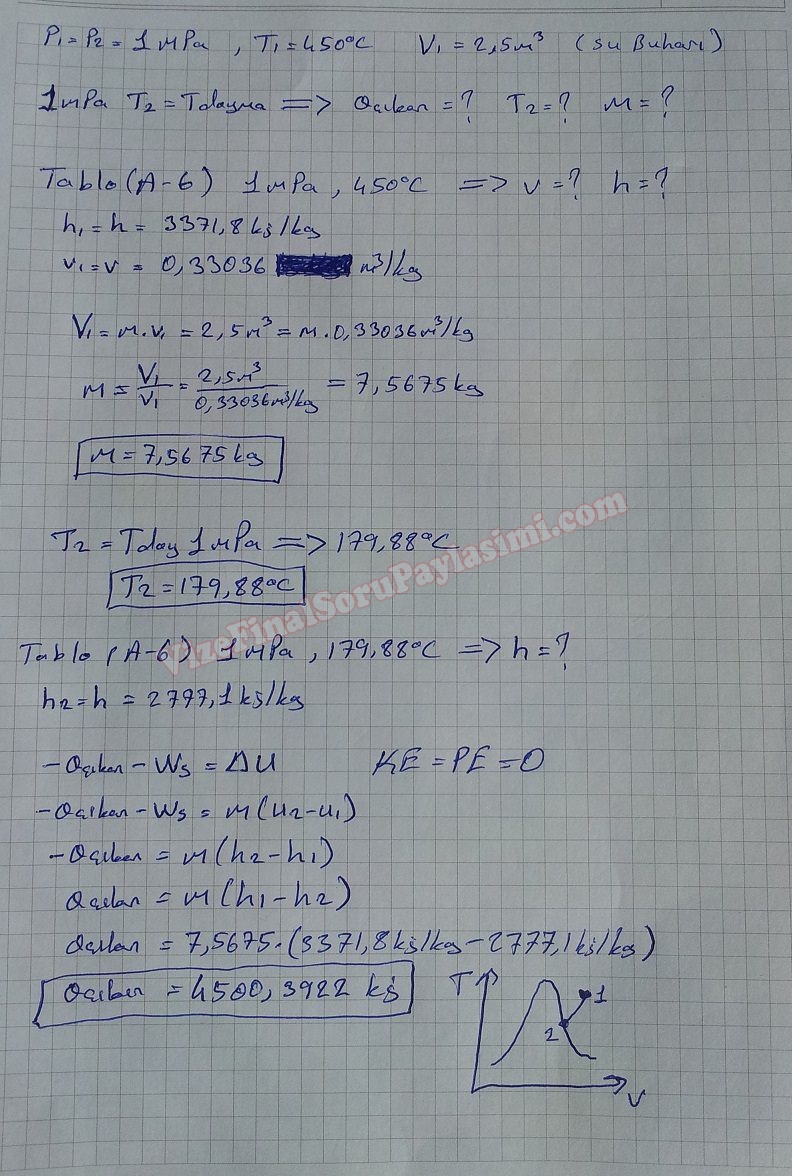 P₁=P₂=1MPa , T₁=450°C V₁=2,5m³ (Su Buharı)
1MPa T₂=Tdoyma => Qçıkan=? T₂=? m=?
Tablo(A-6) 1MPa, 450°C => v=? h=?
h₁=h= 3371,8kj/kg
v₁=v= 0,33036 m³/kg
V₁=m.v₁ = 2,5m³ = m.0,33036m³/kg
m = V₁/v₁ = 2,5m³/0,33036m³/kg = 7,5675kg
m=7,5675kg
T₂=Tdoy 1MPa => 179,88°C
T₂=179,88°C
VizeFinalSoruPaylasimi.com
Tablo (A-6) 1MPa, 179,88°C => h=?
h₂=h = 2777,1kj/kg
-Qçıkan-Ws = ΔU KE=PE=0
-Qçıkan-Ws = m(u₂-u₁)
-Qçıkan = m(h₂-h₁)
Qçıkan = m(h₁-h₂)
Qçıkan = 7,5675.(3371,8kj/kg-2777,1kj/kg)
Qçıkan = 4500,3922 kj
T 1
2
v